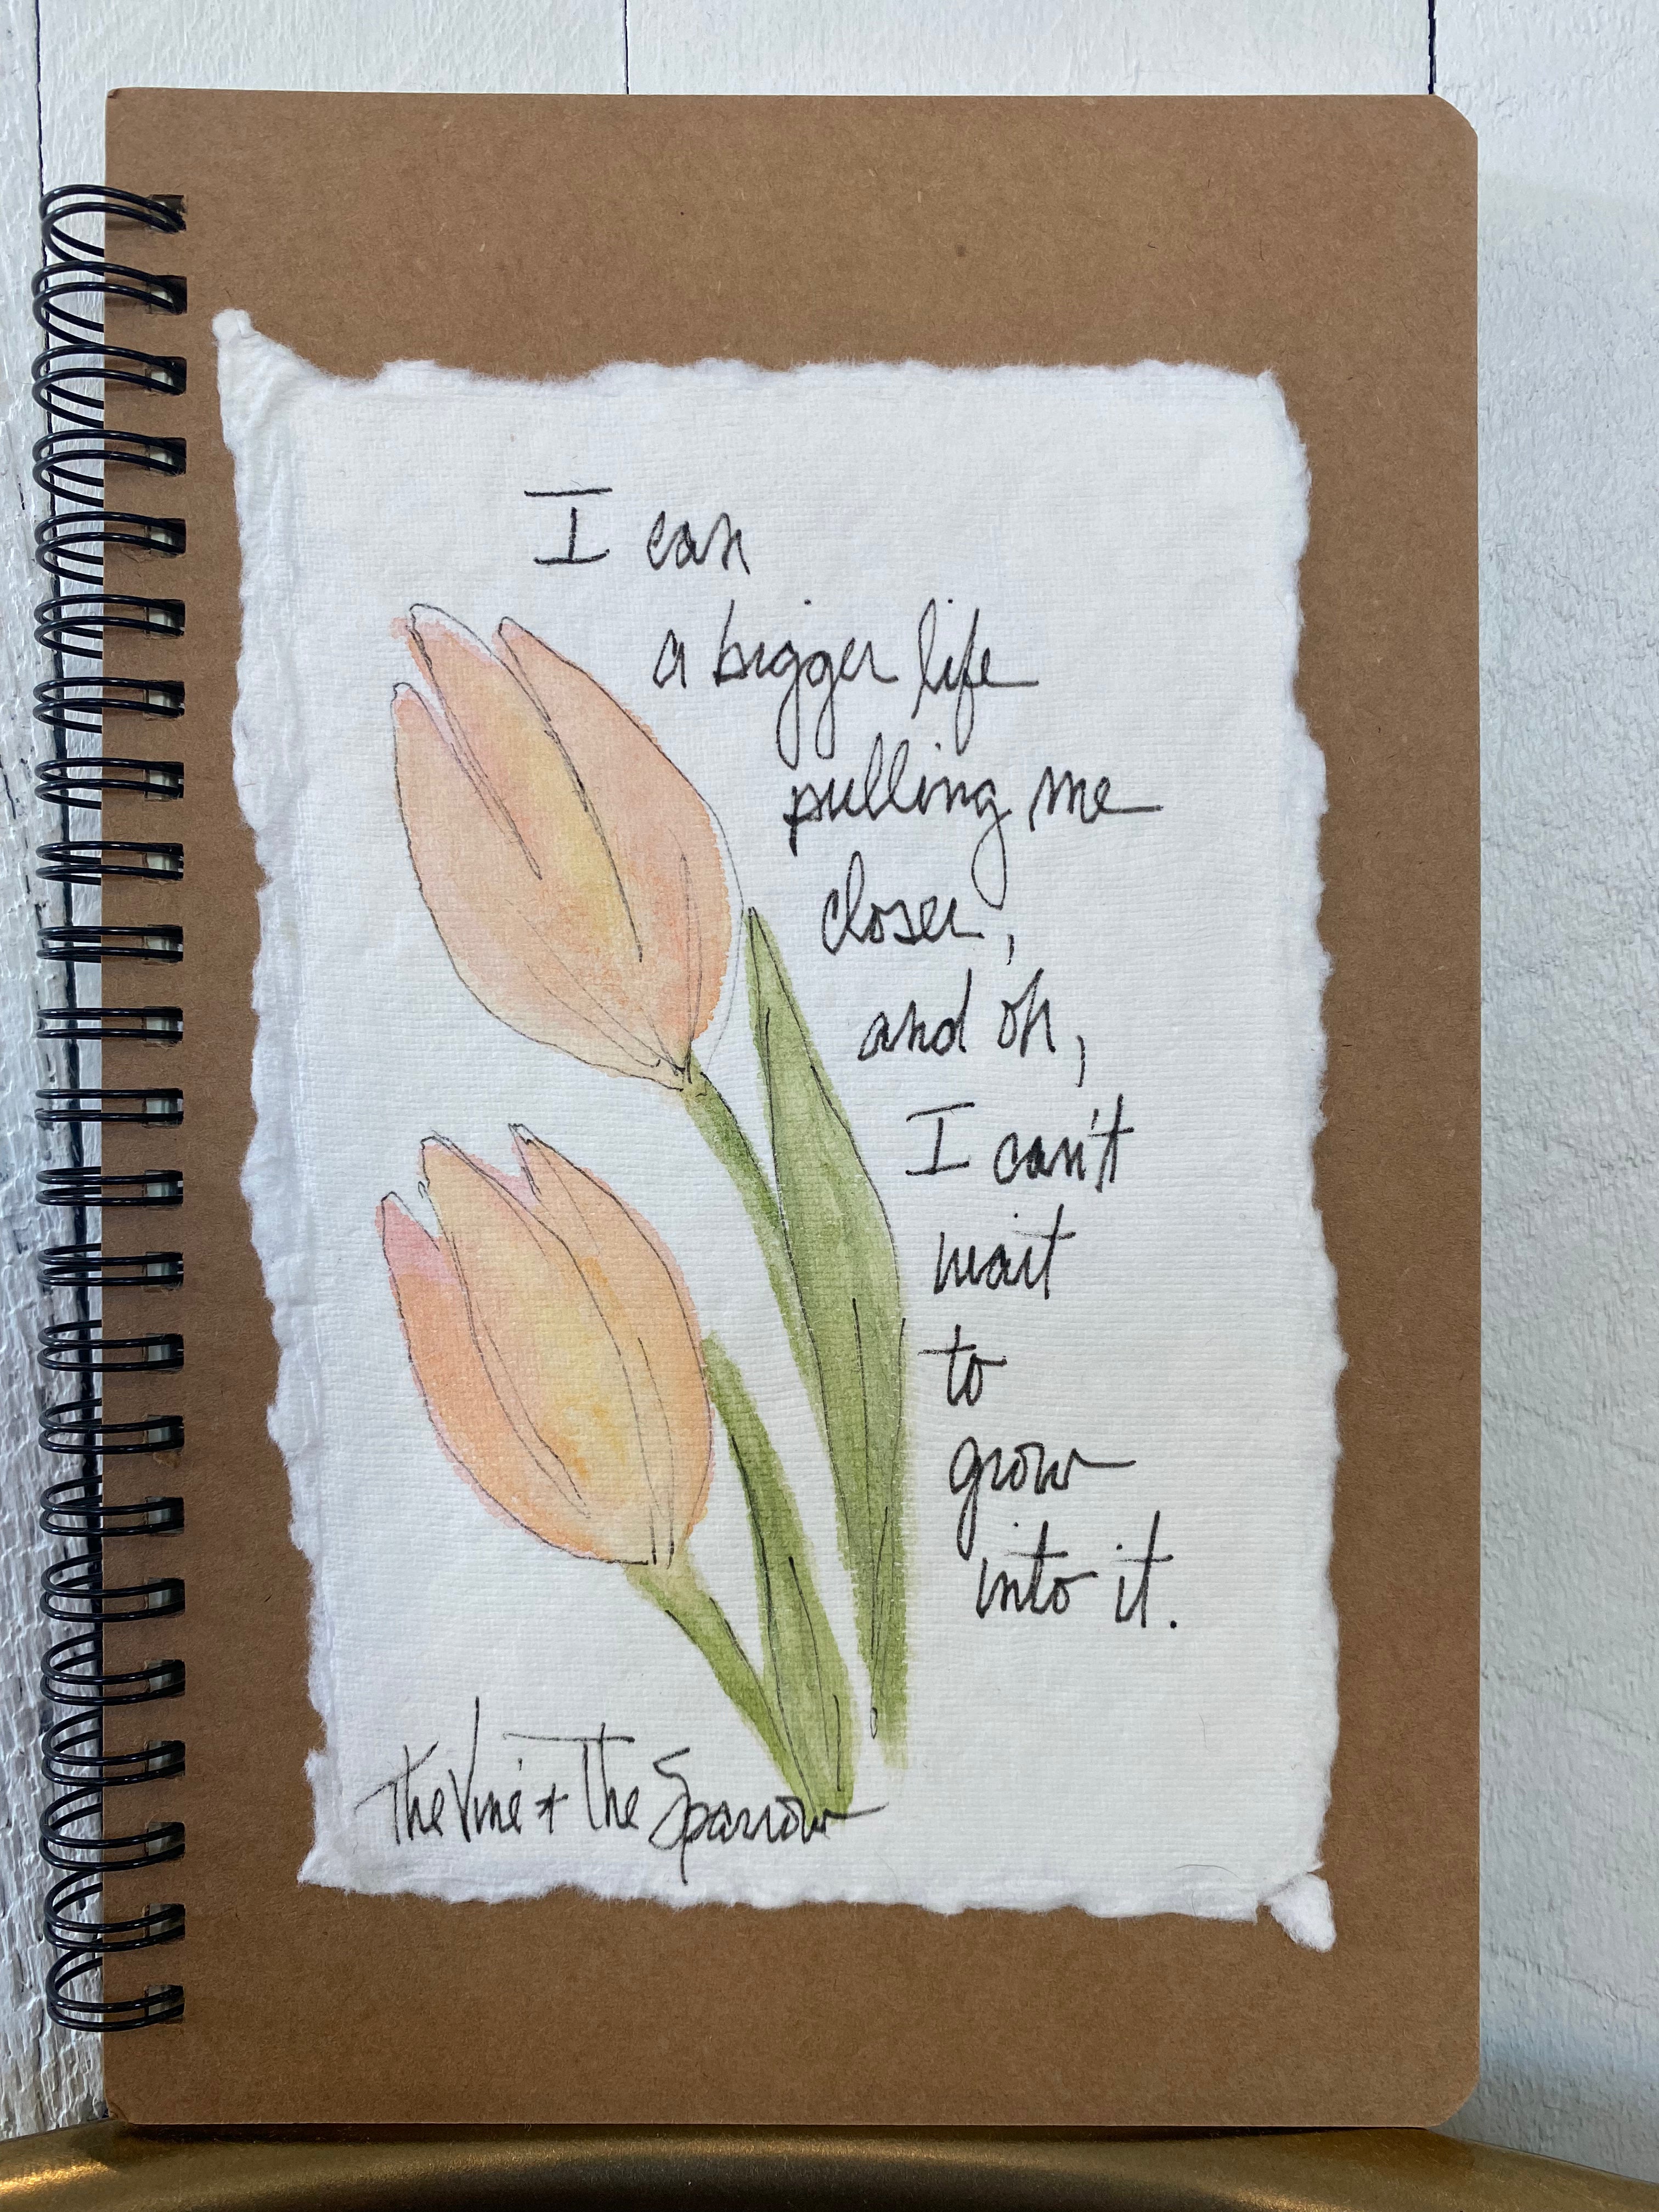 I can
a bigger life
pulling me
closer,
and oh,
I can't
wait
to
grow
into it.
The Vine + The Sparrow